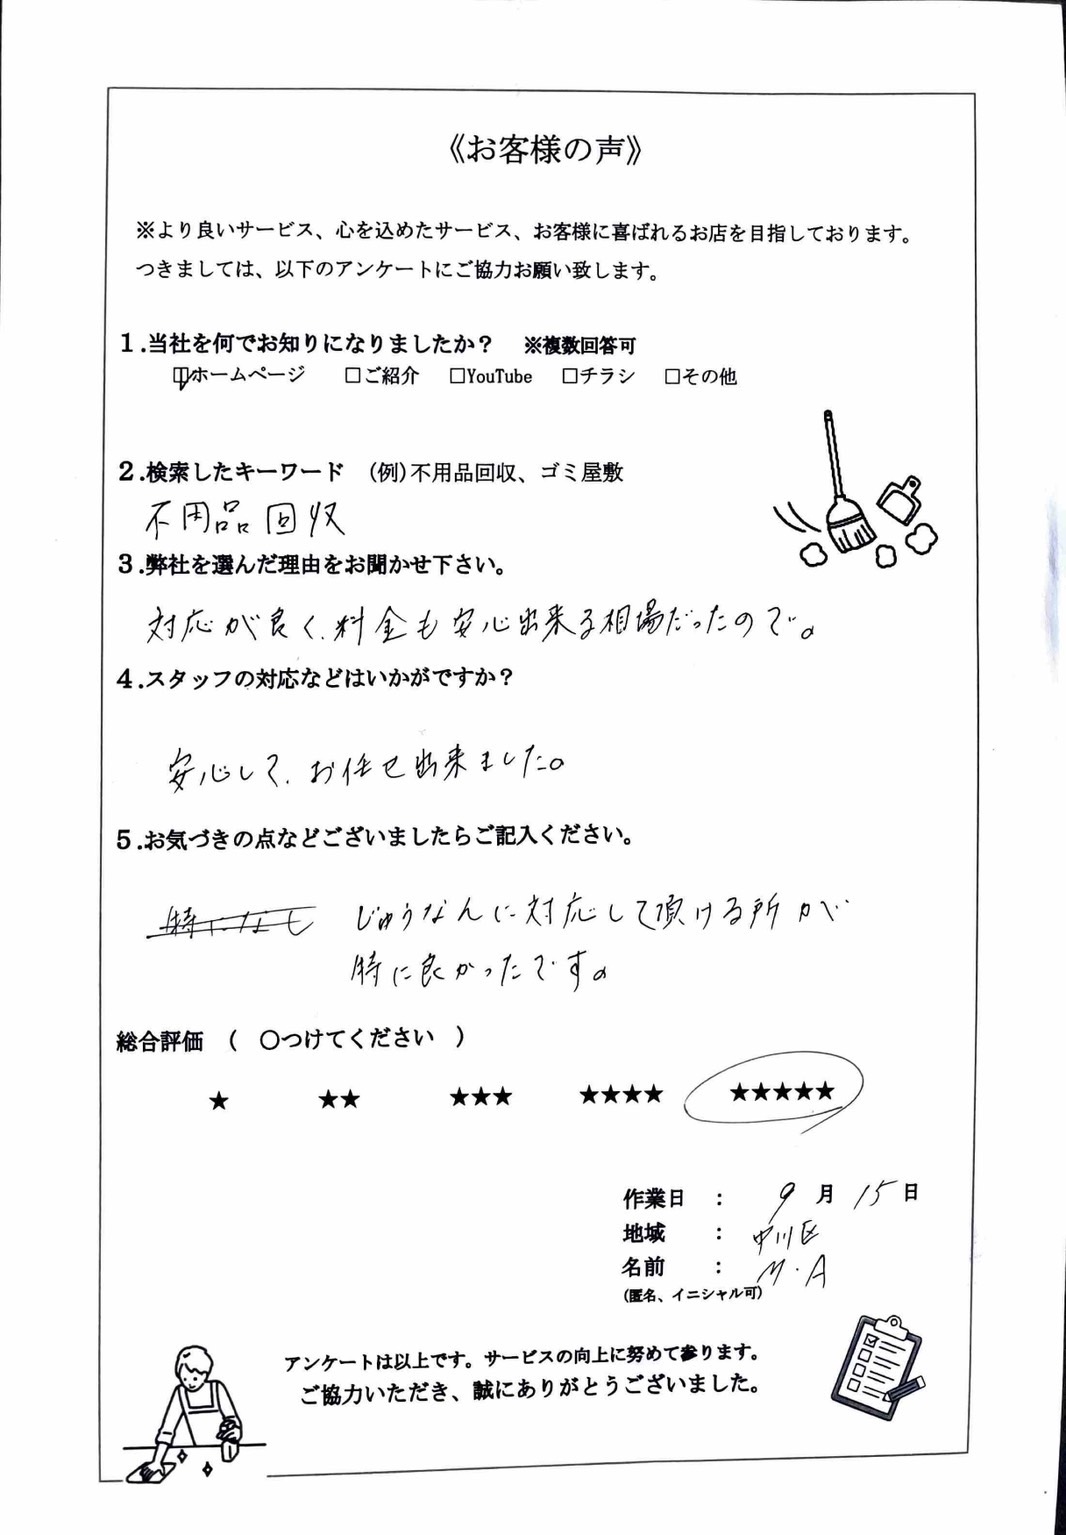 《お客様の声》
※より良いサービス、心を込めたサービス、お客様に喜ばれるお店を目指しております。
つきましては、以下のアンケートにご協力お願い致します。
1.当社を何でお知りになりましたか？ ※複数回答可
☑ホームページ □ご紹介 □YouTube □チラシ □その他
2.検索したキーワード (例)不用品回収、ゴミ屋敷
不用品回収
3.弊社を選んだ理由をお聞かせ下さい。
対応が良く、料金も安心出来る相場だったので。
4.スタッフの対応などはいかがですか？
安心して、お任せ出来ました。
5.お気づきの点などございましたらご記入ください。
特になし じゅうなんに対応して頂ける所が
特に良かったです。
総合評価 ( ○つけてください )
★ ★★ ★★★ ★★★★ ★★★★★
作業日 ： 9月15日
地域 ： 中川区
名前 ： M・A
(匿名、イニシャル可)
アンケートは以上です。サービスの向上に努めて参ります。
ご協力いただき、誠にありがとうございました。